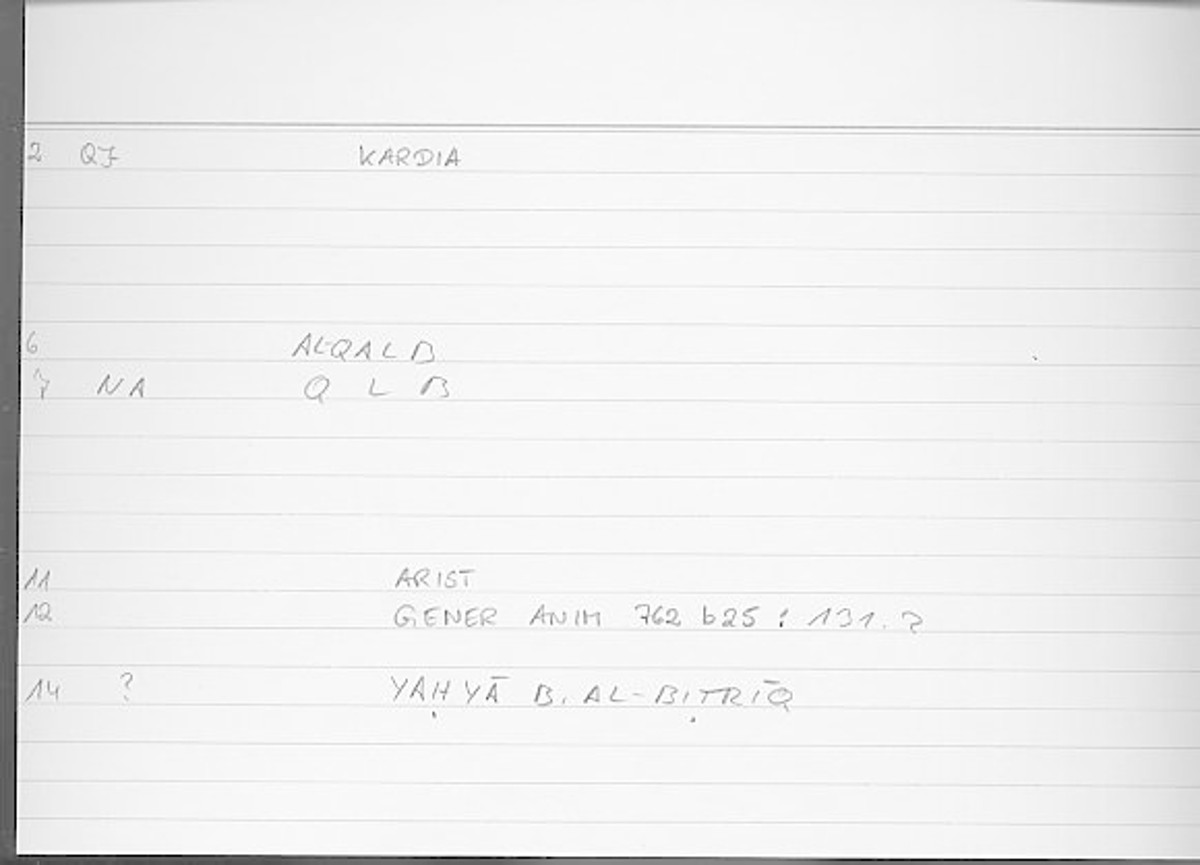 2 QJ KARDIA
6 AL-QALB
7 NA Q L B
11 ARIST
12 GENER ANIM 762 b25 : 131. 2
14 ? YAḤYĀ B. AL-BIṬRĪQ